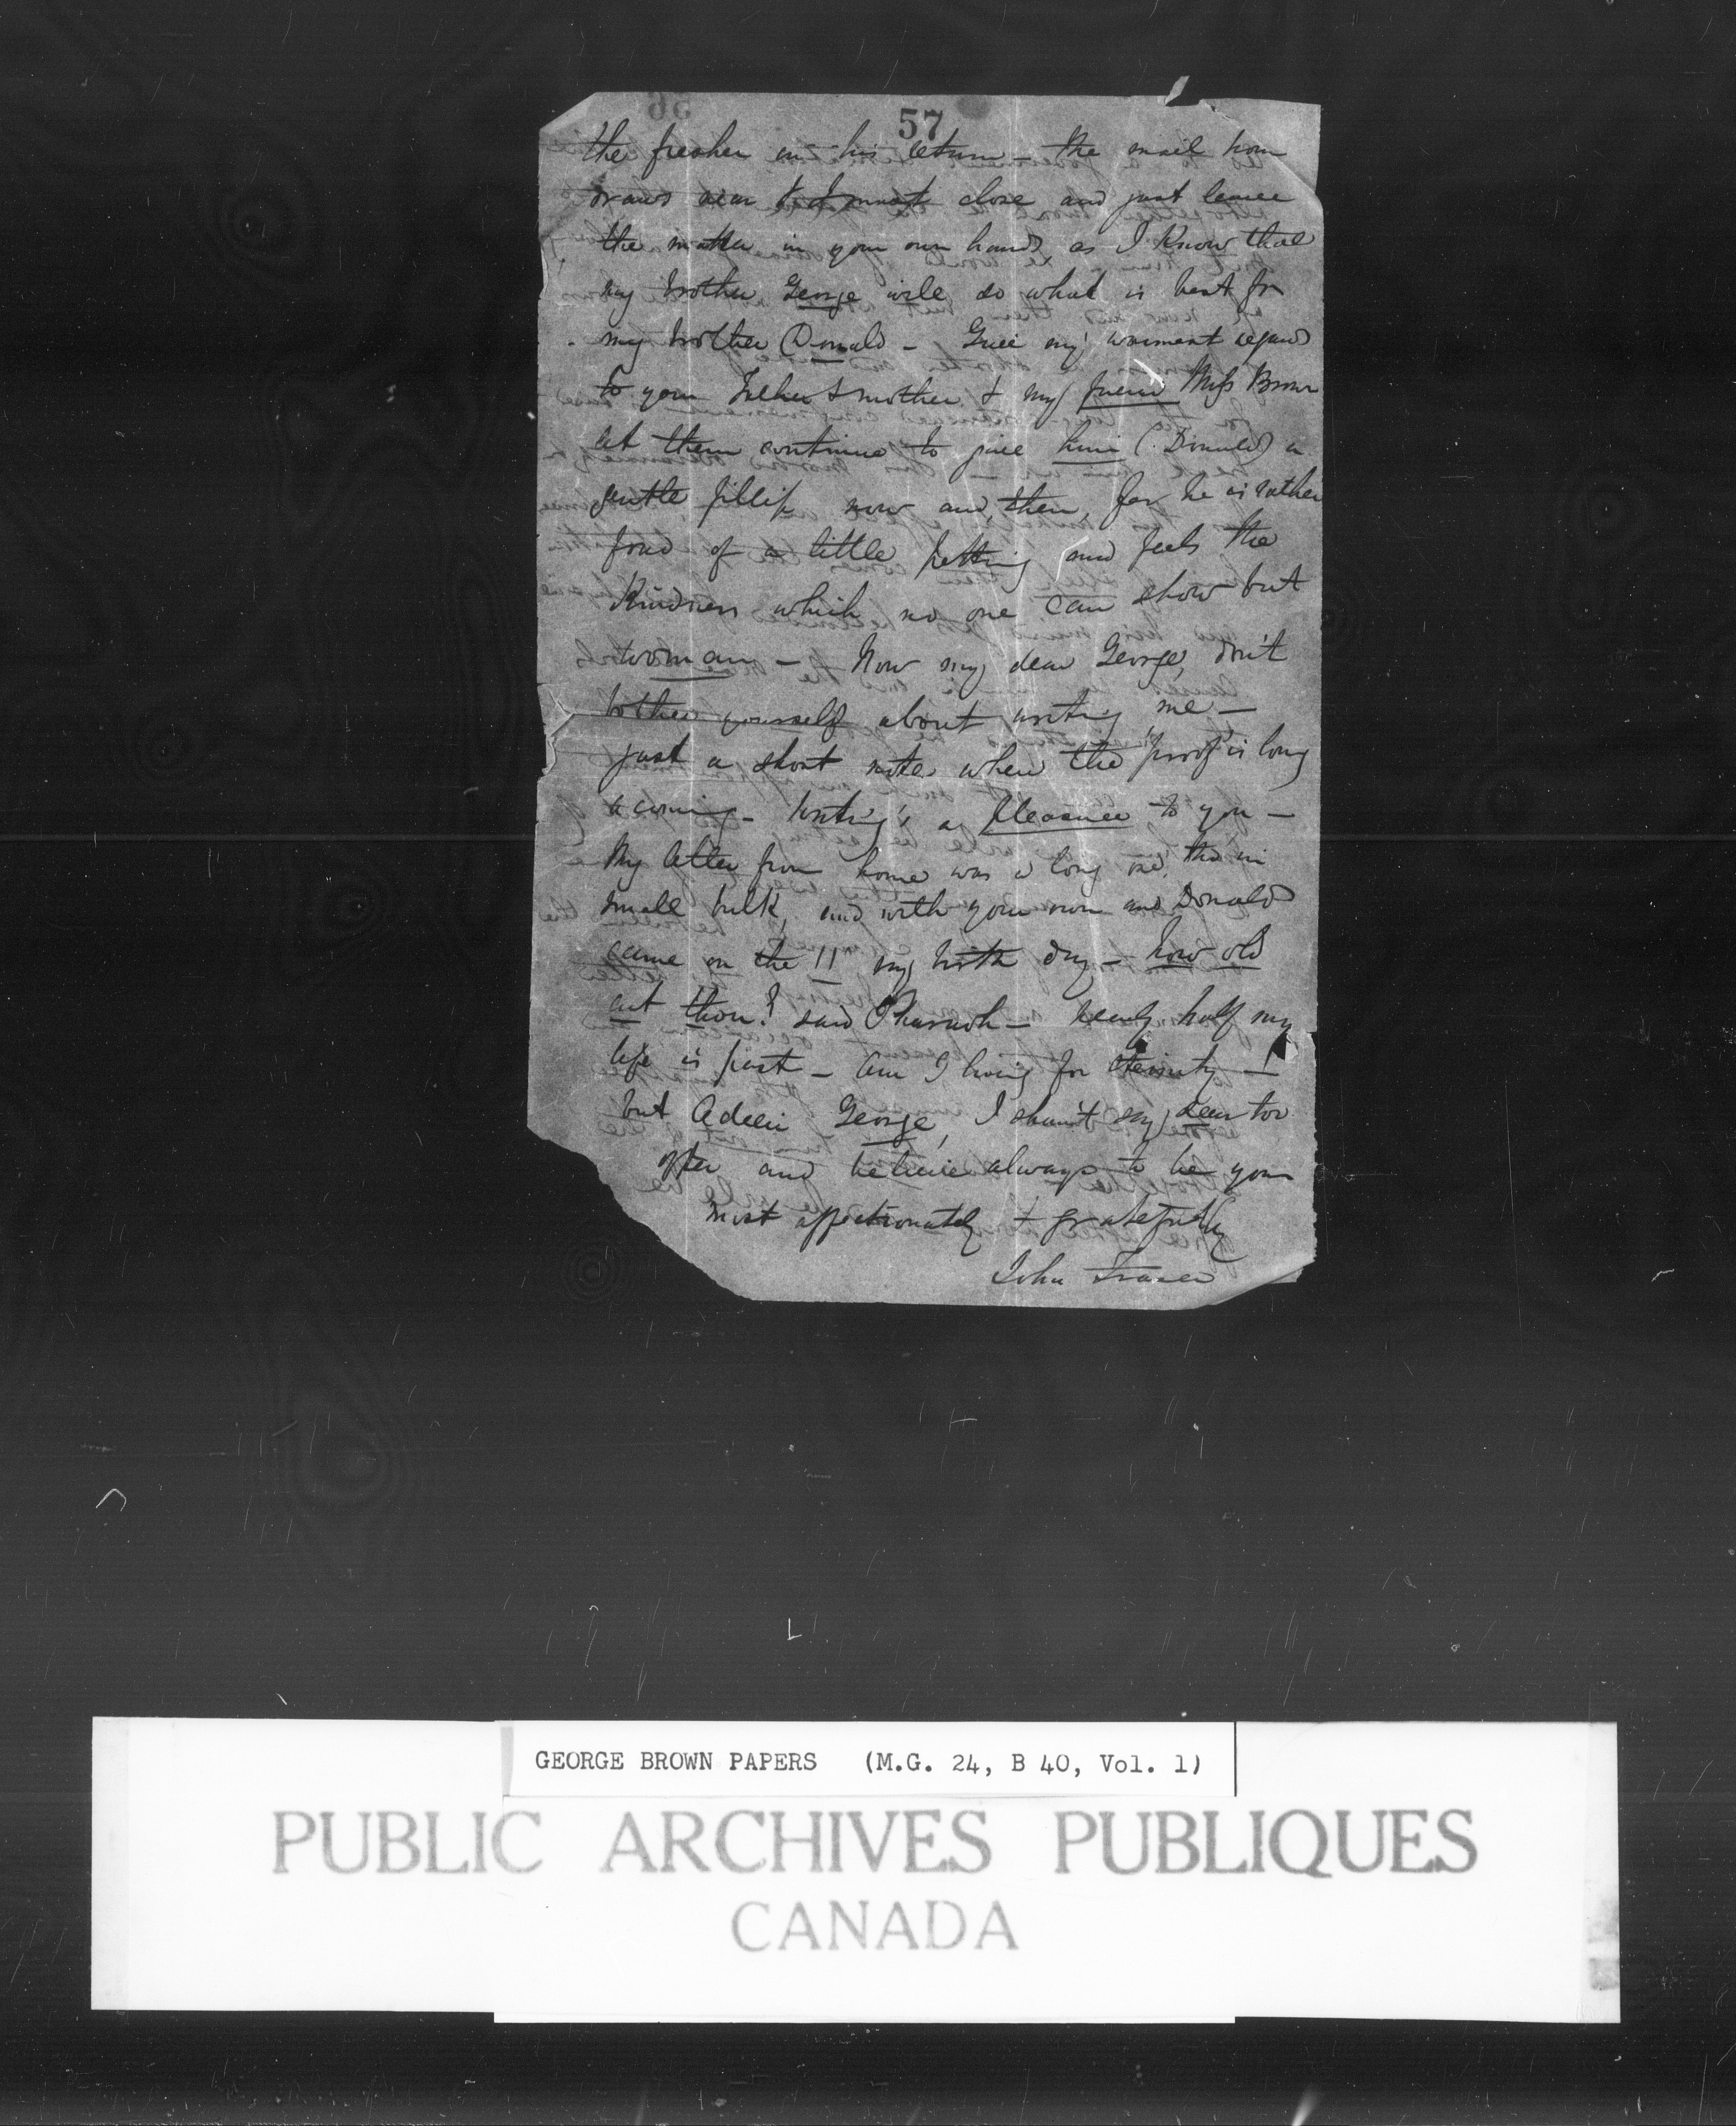 57
the fresher on his return - the mail hour
draws near & I must close and just leave
the matter in your own hands as I know that
my brother George will do what is best for
my brother Donald - Give my warmest regards
to your Father & mother & my friend Miss Brown
let them continue to give him (Donald) a
gentle fillip now and then, for he is rather
fond of a little petting and feels the
kindness which no one can show but
woman - Now my dear George, don't
bother yourself about writing me -
just a short note when the "proof" is long
a coming - writing's a pleasure to you -
My letter from home was a long one, tho' in
small bulk, and with your own and Donald's
came on the 11th my birth day - how old
art thou? said Pharaoh - nearly half my
life is past - am I living for eternity -
but Adieu George, I shan't say dear too
often and believe always to be your
most affectionately & gratefully
John Fraser
GEORGE BROWN PAPERS (M.G. 24, B 40, Vol. 1)
PUBLIC ARCHIVES PUBLIQUES
CANADA